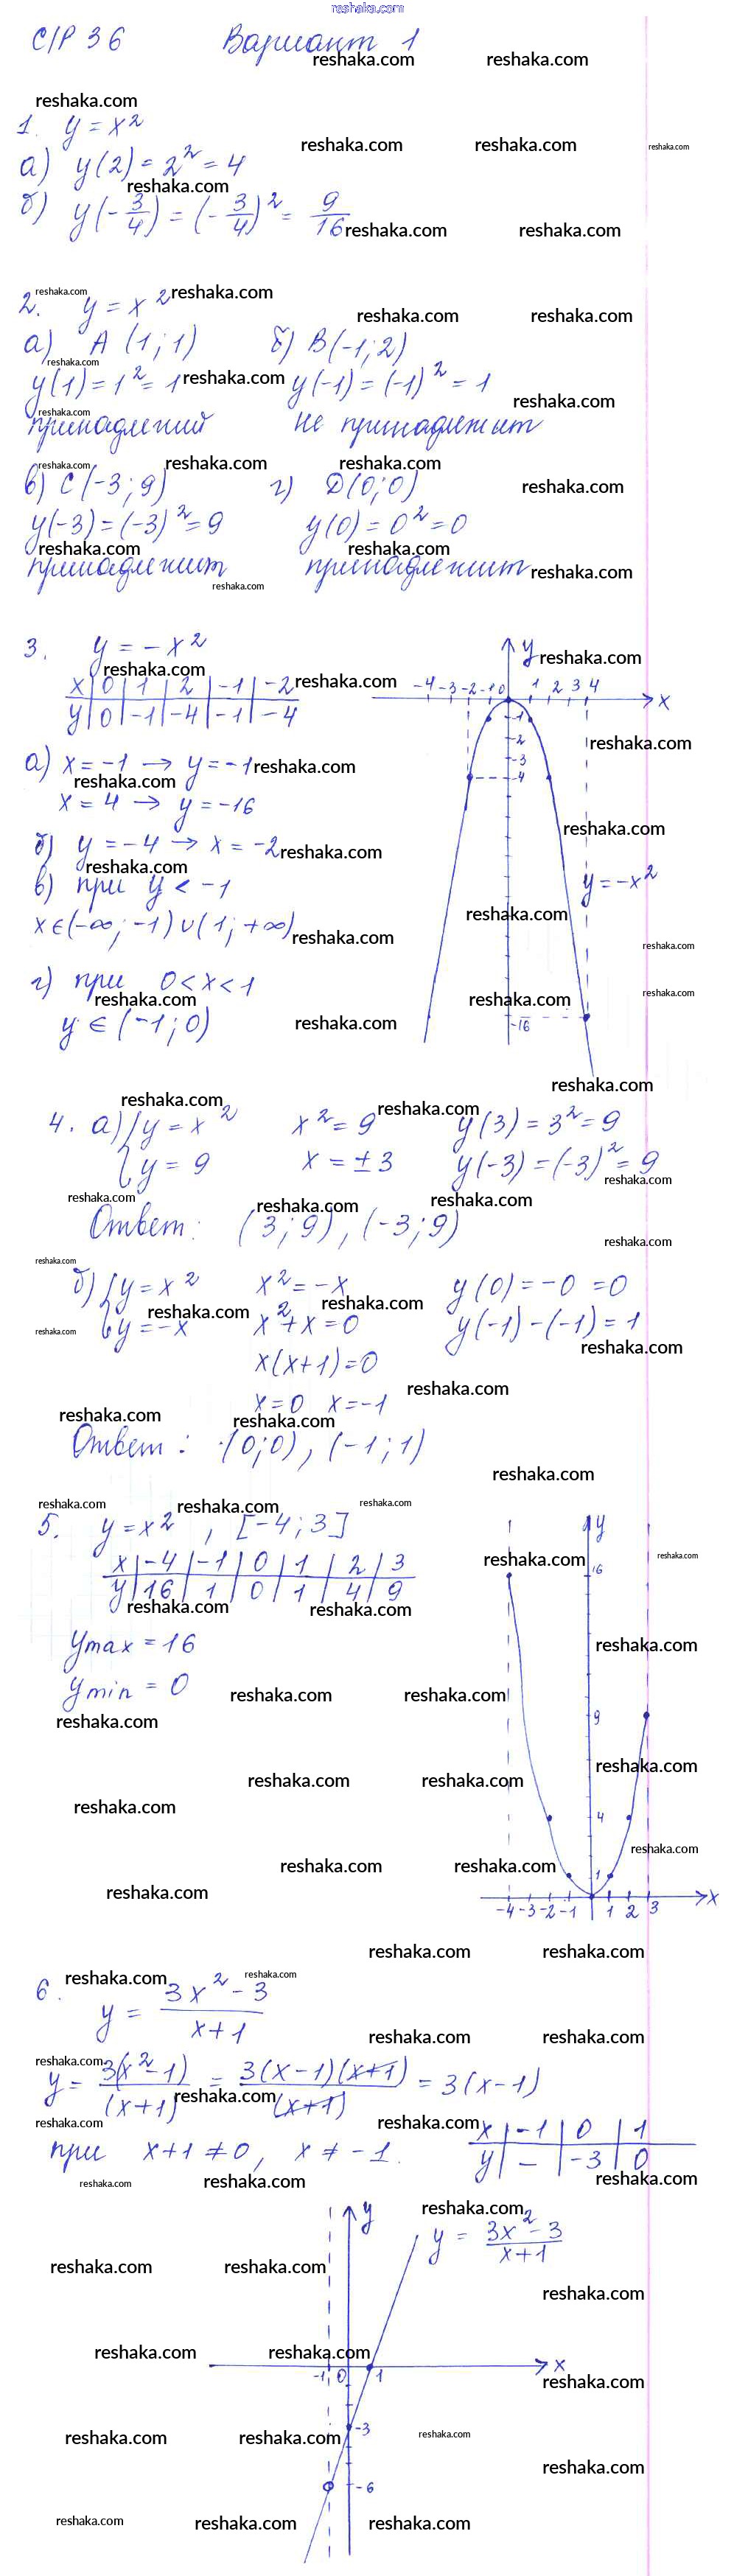 reshaka.com
С/Р 36 Вариант 1
1. y = x²
а) y(2) = 2² = 4
б) y(-3/4) = (-3/4)² = 9/16
2. y = x²
а) A (1; 1) б) B(-1; 2)
y(1) = 1² = 1 y(-1) = (-1)² = 1
не принадлежит
в) C (-3; 9) г) D(0; 0)
y(-3) = (-3)² = 9 y(0) = 0² = 0
принадлежит принадлежит
3. y = -x²
x | 0 | 1 | 2 | -1 | -2
y | 0 | -1 | -4 | -1 | -4
а) x = -1 → y = -1
x = 4 → y = -16
б) y = -4 → x = -2
в) при y < -1
x ∈ (-∞; -1) ∪ (1; +∞)
г) при 0 < x < 1
y ∈ (-1; 0)
y
-4 -3 -2 -1 0 1 2 3 4 x
-1
-2
-3
-4
y = -x²
-16
4. а) { y = x² x² = 9 y(3) = 3² = 9
y = 9 x = ±3 y(-3) = (-3)² = 9
Ответ: (3; 9), (-3; 9)
б) { y = x² x² = -x y(0) = -0 = 0
y = -x x² + x = 0 y(-1) - (-1) = 1
x(x+1) = 0
x = 0 x = -1
Ответ: (0; 0), (-1; 1)
5. y = x², [-4; 3]
x | -4 | -1 | 0 | 1 | 2 | 3
y | 16 | 1 | 0 | 1 | 4 | 9
y max = 16
y min = 0
y
16
9
4
1
-4 -3 -2 -1 1 2 3 x
6. y = (3x² - 3)/(x + 1)
y = 3(x² - 1)/(x + 1) = 3(x - 1)(x + 1)/(x + 1) = 3(x - 1)
при x + 1 ≠ 0, x ≠ -1.
x | -1 | 0 | 1
y | – | -3 | 0
y
y = (3x² - 3)/(x + 1)
-1 0 1 x
-3
-6